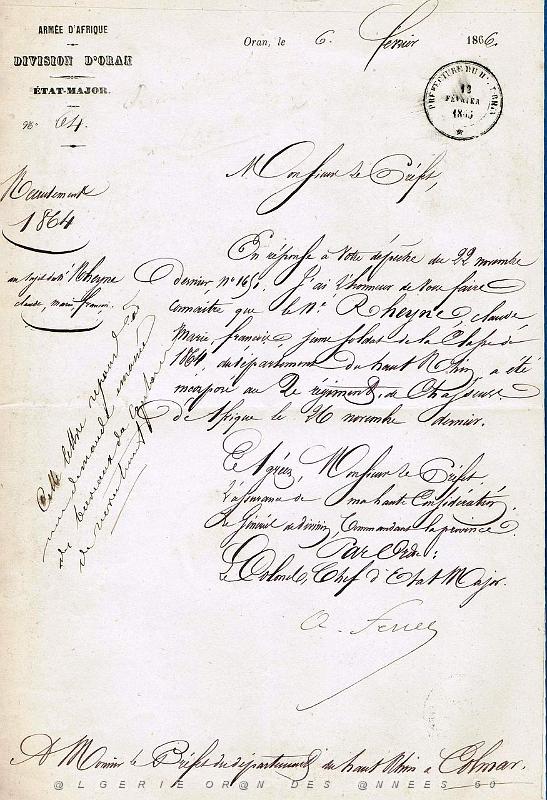 ARMÉE D'AFRIQUE
DIVISION D'ORAN
ÉTAT-MAJOR.
N° 64.
Oran, le 6. février 1866.
PRÉFECTURE DU HT-RHIN
12
FÉVRIER
Recrutement
1864
au sujet du né Rheyne
claude, marie francois.
Monsieur le Préfet,
En réponse à votre dépêche du 22 novembre
dernier n° 161. J'ai l'honneur de vous faire
connaitre que le né Rheyne claude
Marie, francois, jeune soldat de la Classe de
1864, du département du haut Rhin, a été
incorporé au 2e régiment de Chasseurs
d'afrique le 26 novembre dernier.
Agréez, Monsieur le Préfet,
l'assurance de ma haute Considération.
Le Général de division, Commandant la province
Par Ordre:
Le Colonel, Chef d'Etat Major.
Cette lettre répond à
une demande émanée
de bureau
de recrutement
A Monsieur le Préfet du département du haut Rhin à Colmar.
@LGERIE OR@N DES @NNEES 50